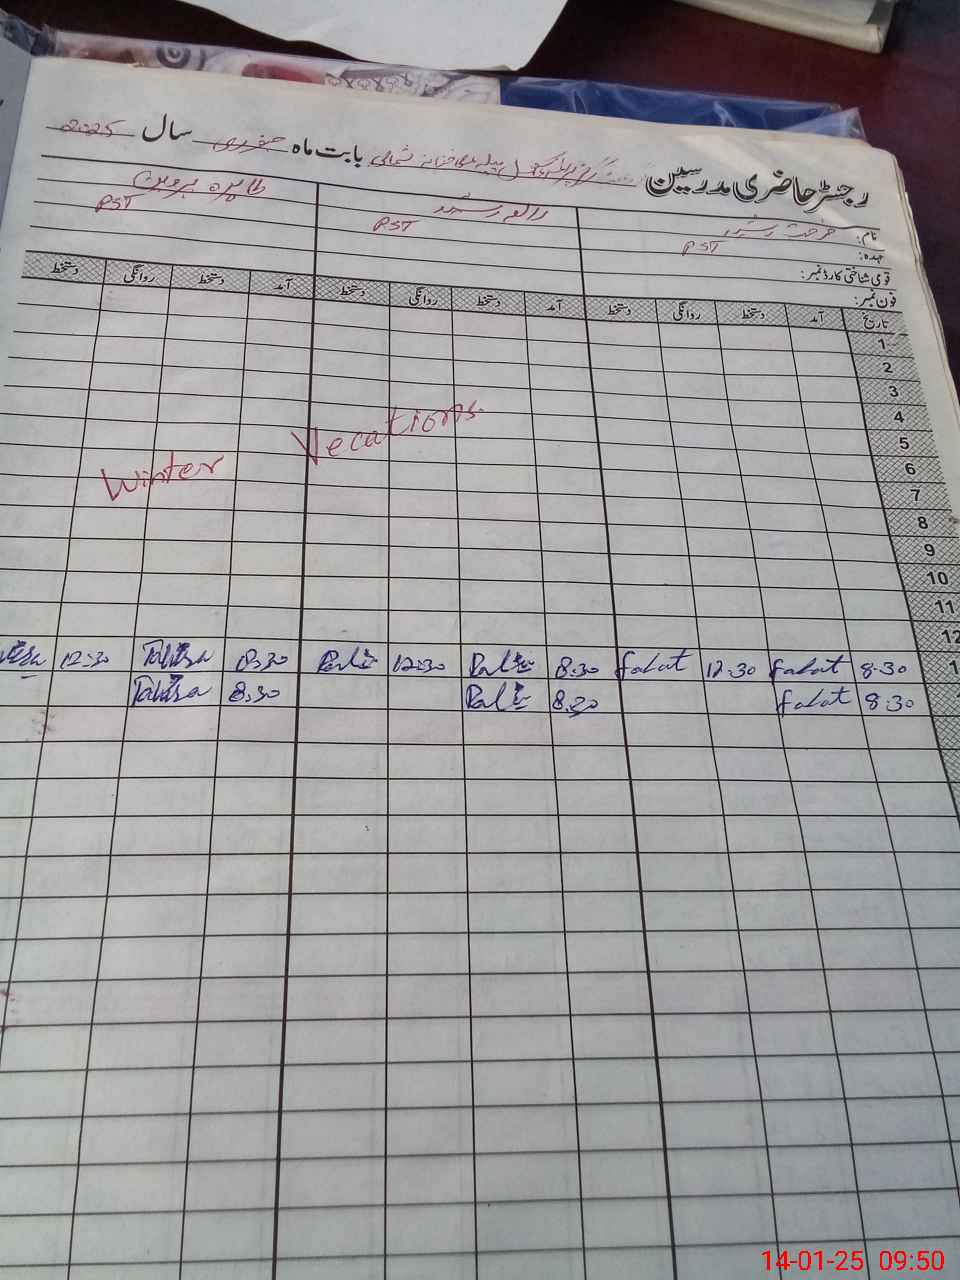 رجسٹر حاضری مدرسین بابت ماہ جنوری سال 2025
نام: فرحت رشید رالعہ رشید طاہرہ پروین
عہدہ: PST PST PST
قومی شناختی کارڈ نمبر:
فون نمبر:
تاریخ آمد دستخط روانگی دستخط آمد دستخط روانگی دستخط آمد دستخط روانگی دستخط
1
2
3
4
5
6
7
8
9
10
11
12
Winter Vecations
12:30 Tahira 8:30 12:30 8:30 falat 12:30 falat 8:30
Tahira 8:30 8:30 falat 8:30
14-01-25 09:50